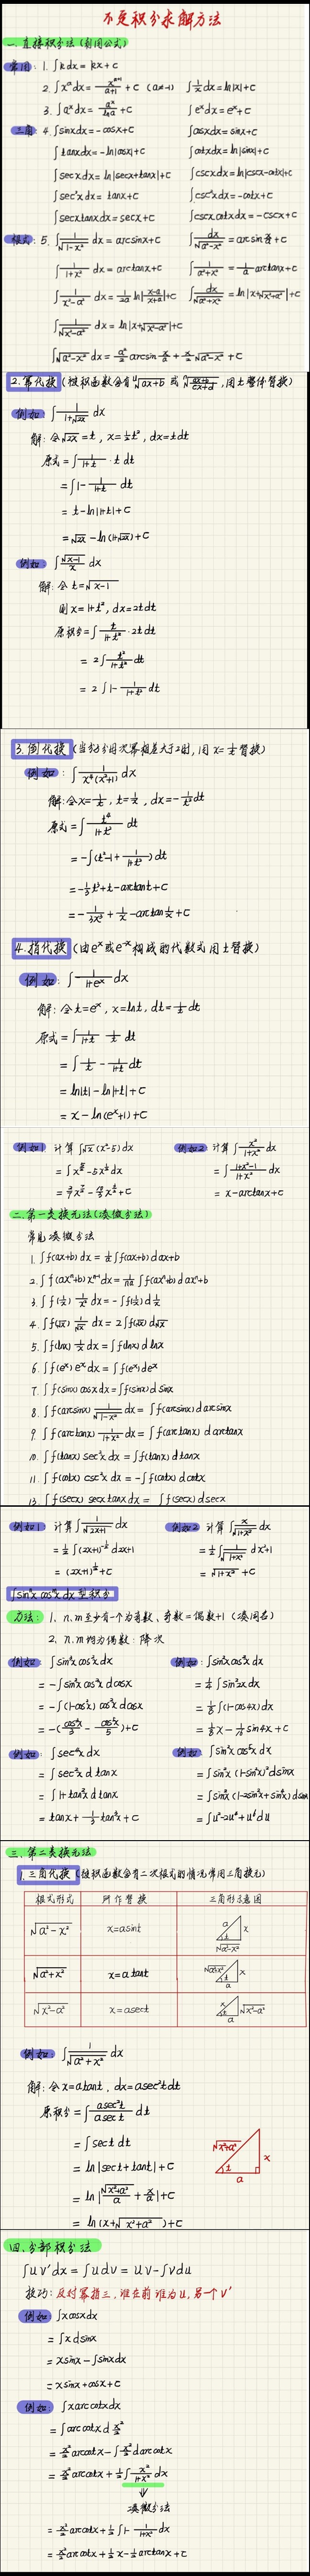 不定积分求解方法
一、直接积分法 (利用公式)
常用: 1. ∫kdx = kx + C
2. ∫xᵃdx = xᵃ⁺¹/(a+1) + C (a≠-1) ∫1/x dx = ln|x| + C
3. ∫aˣdx = aˣ/lna + C ∫eˣdx = eˣ + C
三角: 4. ∫sinxdx = -cosx + C ∫cosxdx = sinx + C
∫tanxdx = -ln|cosx| + C ∫cotxdx = ln|sinx| + C
∫secxdx = ln|secx+tanx| + C ∫cscxdx = ln|cscx-cotx| + C
∫sec²xdx = tanx + C ∫csc²xdx = -cotx + C
∫secxtanxdx = secx + C ∫cscxcotxdx = -cscx + C
根式: 5. ∫1/√(1-x²) dx = arcsinx + C ∫dx/√(a²-x²) = arcsin x/a + C
∫1/(1+x²) dx = arctanx + C ∫1/(a²+x²) = 1/a arctanx + C
∫1/(x²-a²) dx = 1/2a ln|(x-a)/(x+a)| + C ∫dx/√(a²+x²) = ln|x+√(x²+a²)| + C
∫1/√(x²-a²) dx = ln|x+√(x²-a²)| + C
∫√(a²-x²) dx = a²/2 arcsin x/a + x/2 √(a²-x²) + C
2. 幂代换 (被积函数含有 ⁿ√(ax+b) 或 ⁿ√((ax+b)/(cx+d)), 用t整体替换)
例如: ∫1/(1+√2x) dx
解: 令√2x = t, x = ½t², dx = tdt
原式 = ∫1/(1+t) · t dt
= ∫1 - 1/(1+t) dt
= t - ln|1+t| + C
= √2x - ln(1+√2x) + C
例如 ∫√(x-1)/x dx
解: 令 t = √(x-1)
则 x = 1+t², dx = 2tdt
原积分 = ∫t/(1+t²) · 2t dt
= 2∫t²/(1+t²) dt
= 2∫1 - 1/(1+t²) dt
3. 倒代换 (当分子分母次幂相差大于2时, 用 x = 1/t 替换)
例如: ∫1/(x⁴(x²+1)) dx
解: 令x = 1/t, t = 1/x, dx = -1/t² dt
原式 = ∫t⁴/(1+t²) dt
= -∫(t²-1+1/(1+t²)) dt
= -⅓t³ + t - arctant + C
= -1/3x³ + 1/x - arctan 1/x + C
4. 指代换 (由eˣ或e⁻ˣ构成的代数式用t替换)
例如: ∫1/(1+eˣ) dx
解: 令t = eˣ, x = lnt, dt = 1/t dt
原式 = ∫1/(1+t) 1/t dt
= ∫1/t - 1/(1+t) dt
= ln|t| - ln|1+t| + C
= x - ln(eˣ+1) + C
例如1 计算 ∫√x (x²-5) dx 例如2 计算 ∫x²/(1+x²) dx
= ∫x^(5/2) - 5x^(1/2) dx = ∫(1+x²-1)/(1+x²) dx
= 2/7 x^(7/2) - 10/3 x^(3/2) + C = x - arctanx + C
二、第一类换元法 (凑微分法)
常见凑微分法
1. ∫f(ax+b) dx = 1/a ∫f(ax+b) dax+b
2. ∫f(axⁿ+b) xⁿ⁻¹dx = 1/na ∫f(axⁿ+b) daxⁿ+b
3. ∫f(1/x) 1/x² dx = -∫f(1/x) d 1/x
4. ∫f(√x) 1/√x dx = 2∫f(√x) d√x
5. ∫f(lnx) 1/x dx = ∫f(lnx) dlnx
6. ∫f(eˣ) eˣdx = ∫f(eˣ) deˣ
7. ∫f(sinx) cosxdx = ∫f(sinx) dsinx
8. ∫f(arcsinx) 1/√(1-x²) dx = ∫f(arcsinx) darcsinx
9. ∫f(arctanx) 1/(1+x²) dx = ∫f(arctanx) darctanx
10. ∫f(tanx) sec²xdx = ∫f(tanx) dtanx
11. ∫f(cotx) csc²xdx = -∫f(cotx) dcotx
13. ∫f(secx) secxtanxdx = ∫f(secx) dsecx
例如1 计算 ∫1/√(2x+1) dx 例如2 计算 ∫x/√(1+x²) dx
= ½∫(2x+1)^(-½) d2x+1 = ½∫1/√(1+x²) dx²+1
= (2x+1)^½ + C = √(1+x²) + C
∫sinⁿx cosᵐx dx 型积分
方法: 1. n.m至少有一个为奇数, 奇数=偶数+1 (凑同名)
2. n.m均为偶数: 降次
例如: ∫sin³xcos²xdx 例如: ∫sin²xcos²xdx
= -∫sin²xcos²xdcosx = ¼∫sin²2xdx
= -∫(1-cos²x)cos²xdcosx = ⅛∫(1-cos4x) dx
= -(cos³x/3 - cos⁵x/5) + C = ⅛x - 1/32 sin4x + C
例如: ∫sec⁴xdx 例如: ∫sin²xcos⁵xdx
= ∫sec²xdtanx = ∫sin²x(1-sin²x)²dsinx
= ∫1+tan²xdtanx = ∫sin²x(1-2sin²x+sin⁴x)dsinx
= tanx + ⅓tan³x + C = ∫u²-2u⁴+u⁶du
三、第二类换元法
1. 三角代换 (被积函数含有二次根式的情况常用三角换元)
根式形式 所作替换 三角形示意图
√(a²-x²) x = asint a x t √(a²-x²)
√(a²+x²) x = atant √(a²+x²) x t a
√(x²-a²) x = asect x √(x²-a²) t a
例如: ∫1/√(a²+x²) dx
解: 令x = atant, dx = asec²tdt
原积分 = ∫asec²t/asect dt
= ∫sectdt
= ln|sect+tant| + C
= ln|√(x²+a²)/a + x/a| + C
= ln(x+√(x²+a²)) + C
√(x²+a²) x t a
四、分部积分法
∫uv'dx = ∫udv = uv - ∫vdu
技巧: 反对幂指三, 谁在前谁为u, 另一个v'
例如: ∫xcosxdx
= ∫xdsinx
= xsinx - ∫sinxdx
= xsinx + cosx + C
例如: ∫xarccotxdx
= ∫arccotxd x²/2
= x²/2 arccotx - ∫x²/2 darccotx
= x²/2 arccotx + ½∫x²/(1+x²) dx
凑微分法
= x²/2 arccotx + ½∫1 - 1/(1+x²) dx
= x²/2 arccotx + ½x - ½arctanx + C